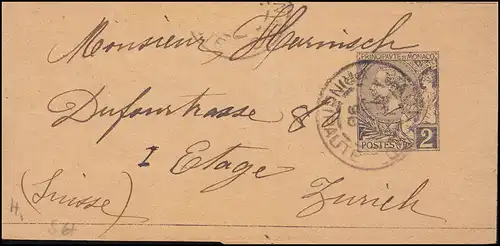 Monsieur Harnisch
PRINCIPAUTÉ DE MONACO
Dufourstrasse 8
POSTES 2
I Etage
(Suisse)
Zurich
H.